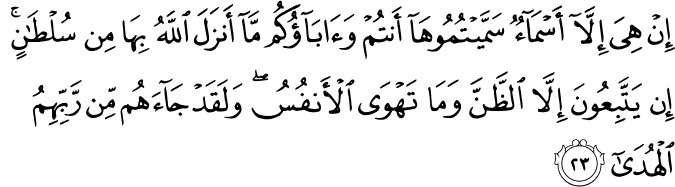 إِنْ هِىَ إِلَّآ أَسْمَآءٌ سَمَّيْتُمُوهَآ أَنتُمْ وَءَابَآؤُكُم مَّآ أَنزَلَ ٱللَّهُ بِهَا مِن سُلْطَٰنٍ ۚ
إِن يَتَّبِعُونَ إِلَّا ٱلظَّنَّ وَمَا تَهْوَى ٱلْأَنفُسُ ۖ وَلَقَدْ جَآءَهُم مِّن رَّبِّهِمُ
ٱلْهُدَىٰٓ ٢٣